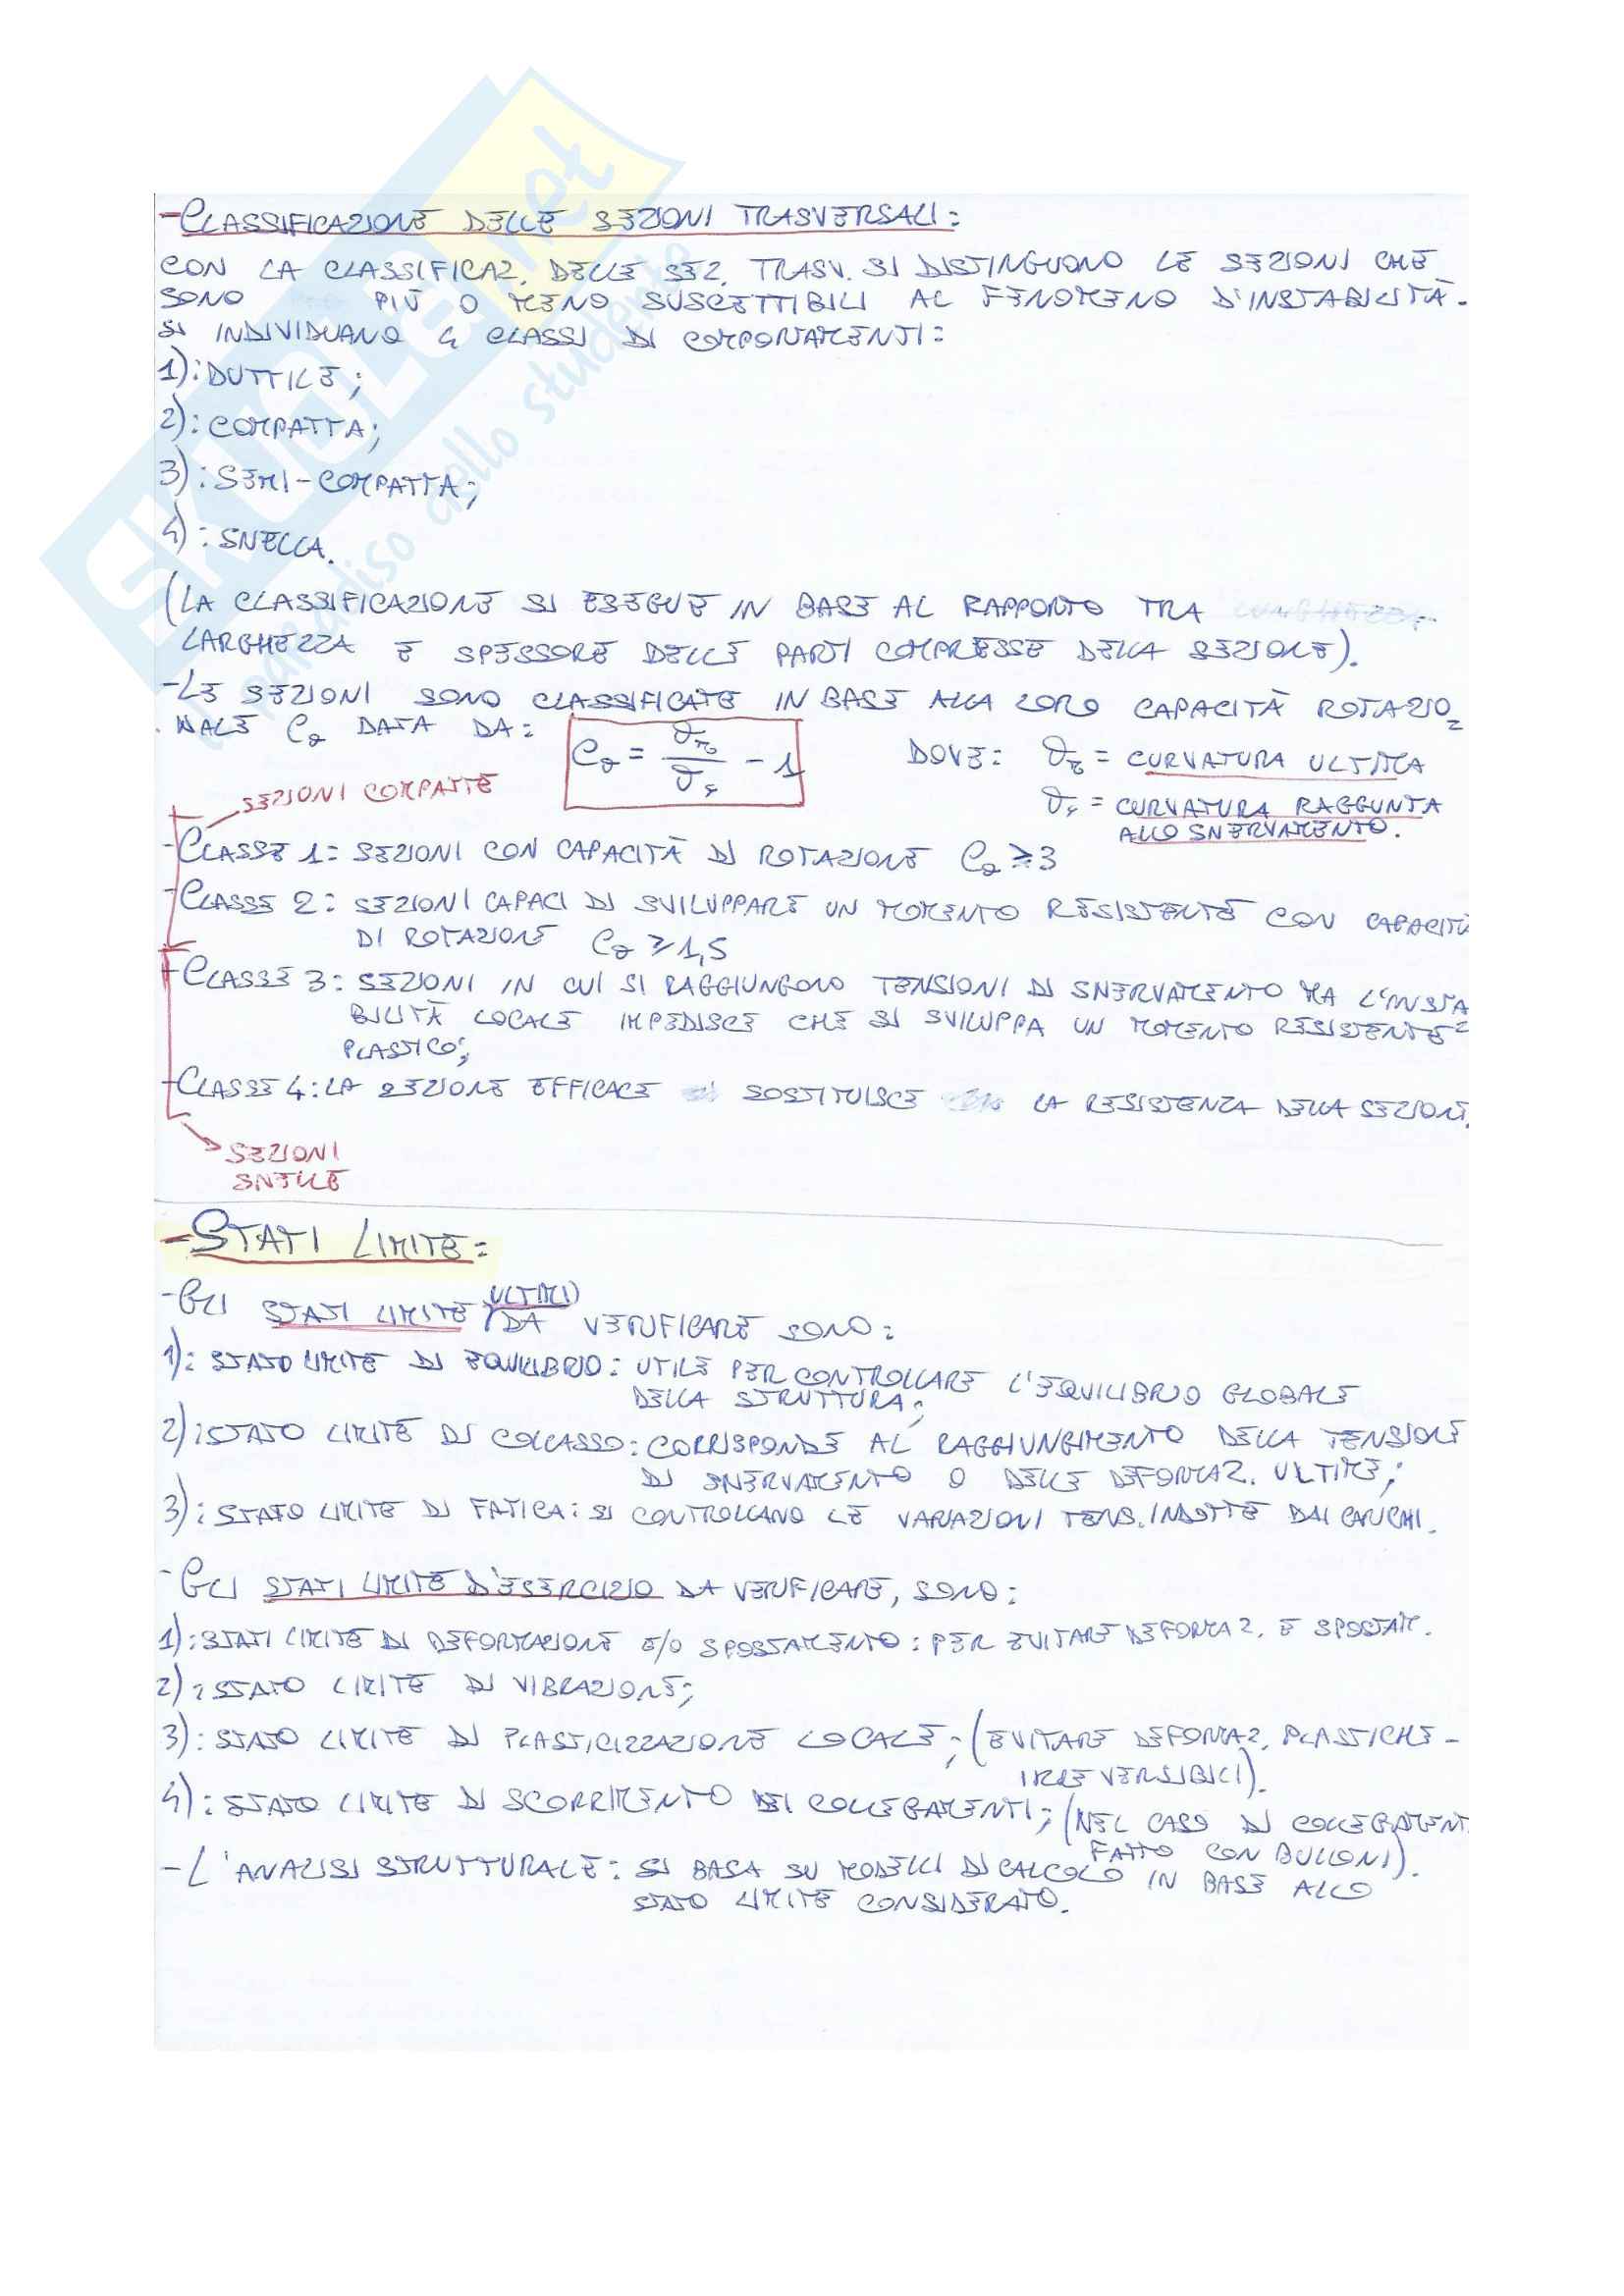 -CLASSIFICAZIONE DELLE SEZIONI TRASVERSALI:
CON LA CLASSIFICAZ. DELLE SEZ. TRASV. SI DISTINGUONO LE SEZIONI CHE
SONO PIÙ O MENO SUSCETTIBILI AL FENOMENO D'INSTABILITÀ.
SI INDIVIDUANO 4 CLASSI DI COMPORTAMENTI:
1): DUTTILE;
2): COMPATTA;
3): SEMI-COMPATTA;
4): SNELLA.
(LA CLASSIFICAZIONE SI ESEGUE IN BASE AL RAPPORTO TRA
LARGHEZZA E SPESSORE DELLE PARTI COMPRESSE DELLA SEZIONE).
-LE SEZIONI SONO CLASSIFICATE IN BASE ALLA LORO CAPACITÀ ROTAZIO=
NALE Cϑ DATA DA: Cϑ = ϑr/ϑy - 1 DOVE: ϑr = CURVATURA ULTIMA
ϑy = CURVATURA RAGGUNTA
ALLO SNERVAMENTO.
SEZIONI COMPATTE
-CLASSE 1: SEZIONI CON CAPACITÀ DI ROTAZIONE Cϑ ≥ 3
-CLASSE 2: SEZIONI CAPACI DI SVILUPPARE UN MOMENTO RESISTENTE CON CAPACITÀ
DI ROTAZIONE Cϑ ≥ 1,5
-CLASSE 3: SEZIONI IN CUI SI RAGGIUNGONO TENSIONI DI SNERVAMENTO MA L'INSTA
BILITÀ LOCALE IMPEDISCE CHE SI SVILUPPA UN MOMENTO RESISTENTE
PLASTICO;
-CLASSE 4: LA SEZIONE EFFICACE SOSTITUISCE LA RESISTENZA DELLA SEZIONE.
SEZIONI
SNELLE
-STATI LIMITE:
-GLI STATI LIMITE ULTIMI DA VERIFICARE SONO:
1): STATO LIMITE DI EQUILIBRIO: UTILE PER CONTROLLARE L'EQUILIBRIO GLOBALE
DELLA STRUTTURA;
2): STATO LIMITE DI COLLASSO: CORRISPONDE AL RAGGIUNGIMENTO DELLA TENSIONE
DI SNERVAMENTO O DELLE DEFORMAZ. ULTIME;
3): STATO LIMITE DI FATICA: SI CONTROLLANO LE VARIAZIONI TENS. INDOTTE DAI CARICHI.
-GLI STATI LIMITE D'ESERCIZIO DA VERIFICARE, SONO:
1): STATI LIMITE DI DEFORMAZIONE E/O SPOSTAMENTO: PER EVITARE DEFORMAZ. E SPOSTAM.
2): STATO LIMITE DI VIBRAZIONE;
3): STATO LIMITE DI PLASTICIZZAZIONE LOCALE; (EVITARE DEFORMAZ. PLASTICHE-
IRREVERSIBILI).
4): STATO LIMITE DI SCORRIMENTO DEI COLLEGAMENTI; (NEL CASO DI COLLEGAMENT
FATTO CON BULLONI).
-L'ANALISI STRUTTURALE: SI BASA SU MODELLI DI CALCOLO IN BASE ALLO
STATO LIMITE CONSIDERATO.
SKUOLA.net
il paradiso dello studente